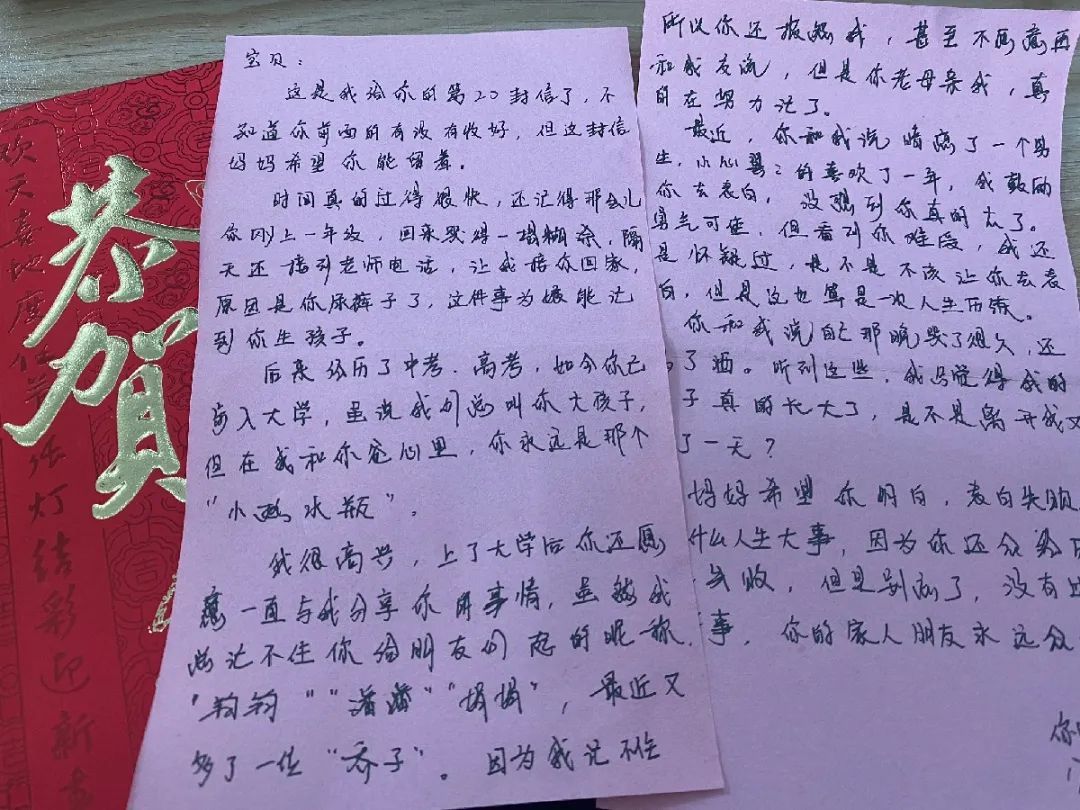 恭贺
欢天喜地度佳节张灯结彩迎新春
宝贝：
这是我给你的第20封信了，不
知道你前面的有没有收好，但这封信
妈妈希望你能留着。
时间真的过得很快，还记得那会儿
你刚上一年级，回来哭得一塌糊涂，隔
天还接到老师电话，让我接你回家，
原因是你尿裤子了，这件事为娘能记
到你生孩子。
后来经历了中考、高考，如今你已
步入大学，虽说我们总叫你大孩子，
但在我和你爸心里，你永远是那个
"小酒水瓶"。
我很高兴，上了大学后你还愿
意一直与我分享你的事情，虽然我
总记不住你给朋友们起的昵称
"钧钧""潘潘""娟娟"，最近又
多了一位"乔子"。因为我记不住
所以你还报怨我，甚至不愿意再
和我交流，但是你老母亲我，真
的在努力记了。
最近，你和我说暗恋了一个男
生，小心翼翼的喜欢了一年，我鼓励
你去表白，没想到你真的去了。
勇气可佳，但看到你难受，我还
是怀疑过，是不是不该让你去表
白，但是这也算是一次人生历练。
你和我说自己那晚哭了很久，还
了酒。听到这些，我只觉得我的
子真的长大了，是不是离开我又
了一天？
妈妈希望你明白，表白失败
什么人生大事，因为你还会经历
失败，但是别怕了，没有过
事，你的家人朋友永远会
你